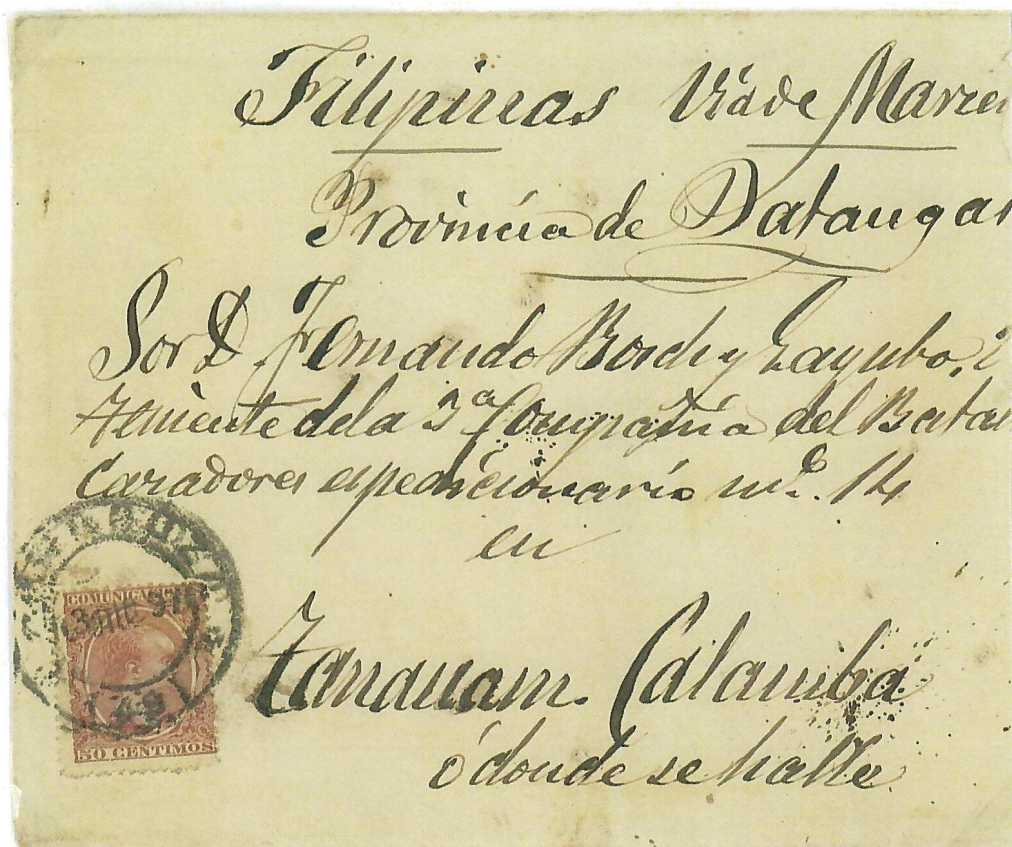 Filipinas Via de Marse
Provincia de Batangas
Sor D. Fernando Bordi y
Teniente de la 5ª Compañia del Batal
Cazadores expedicionario nº. 14
en
Tanauam. Calamba
ó donde se halle
COMUNICACI
3 DIC 97
50 CENTIMOS